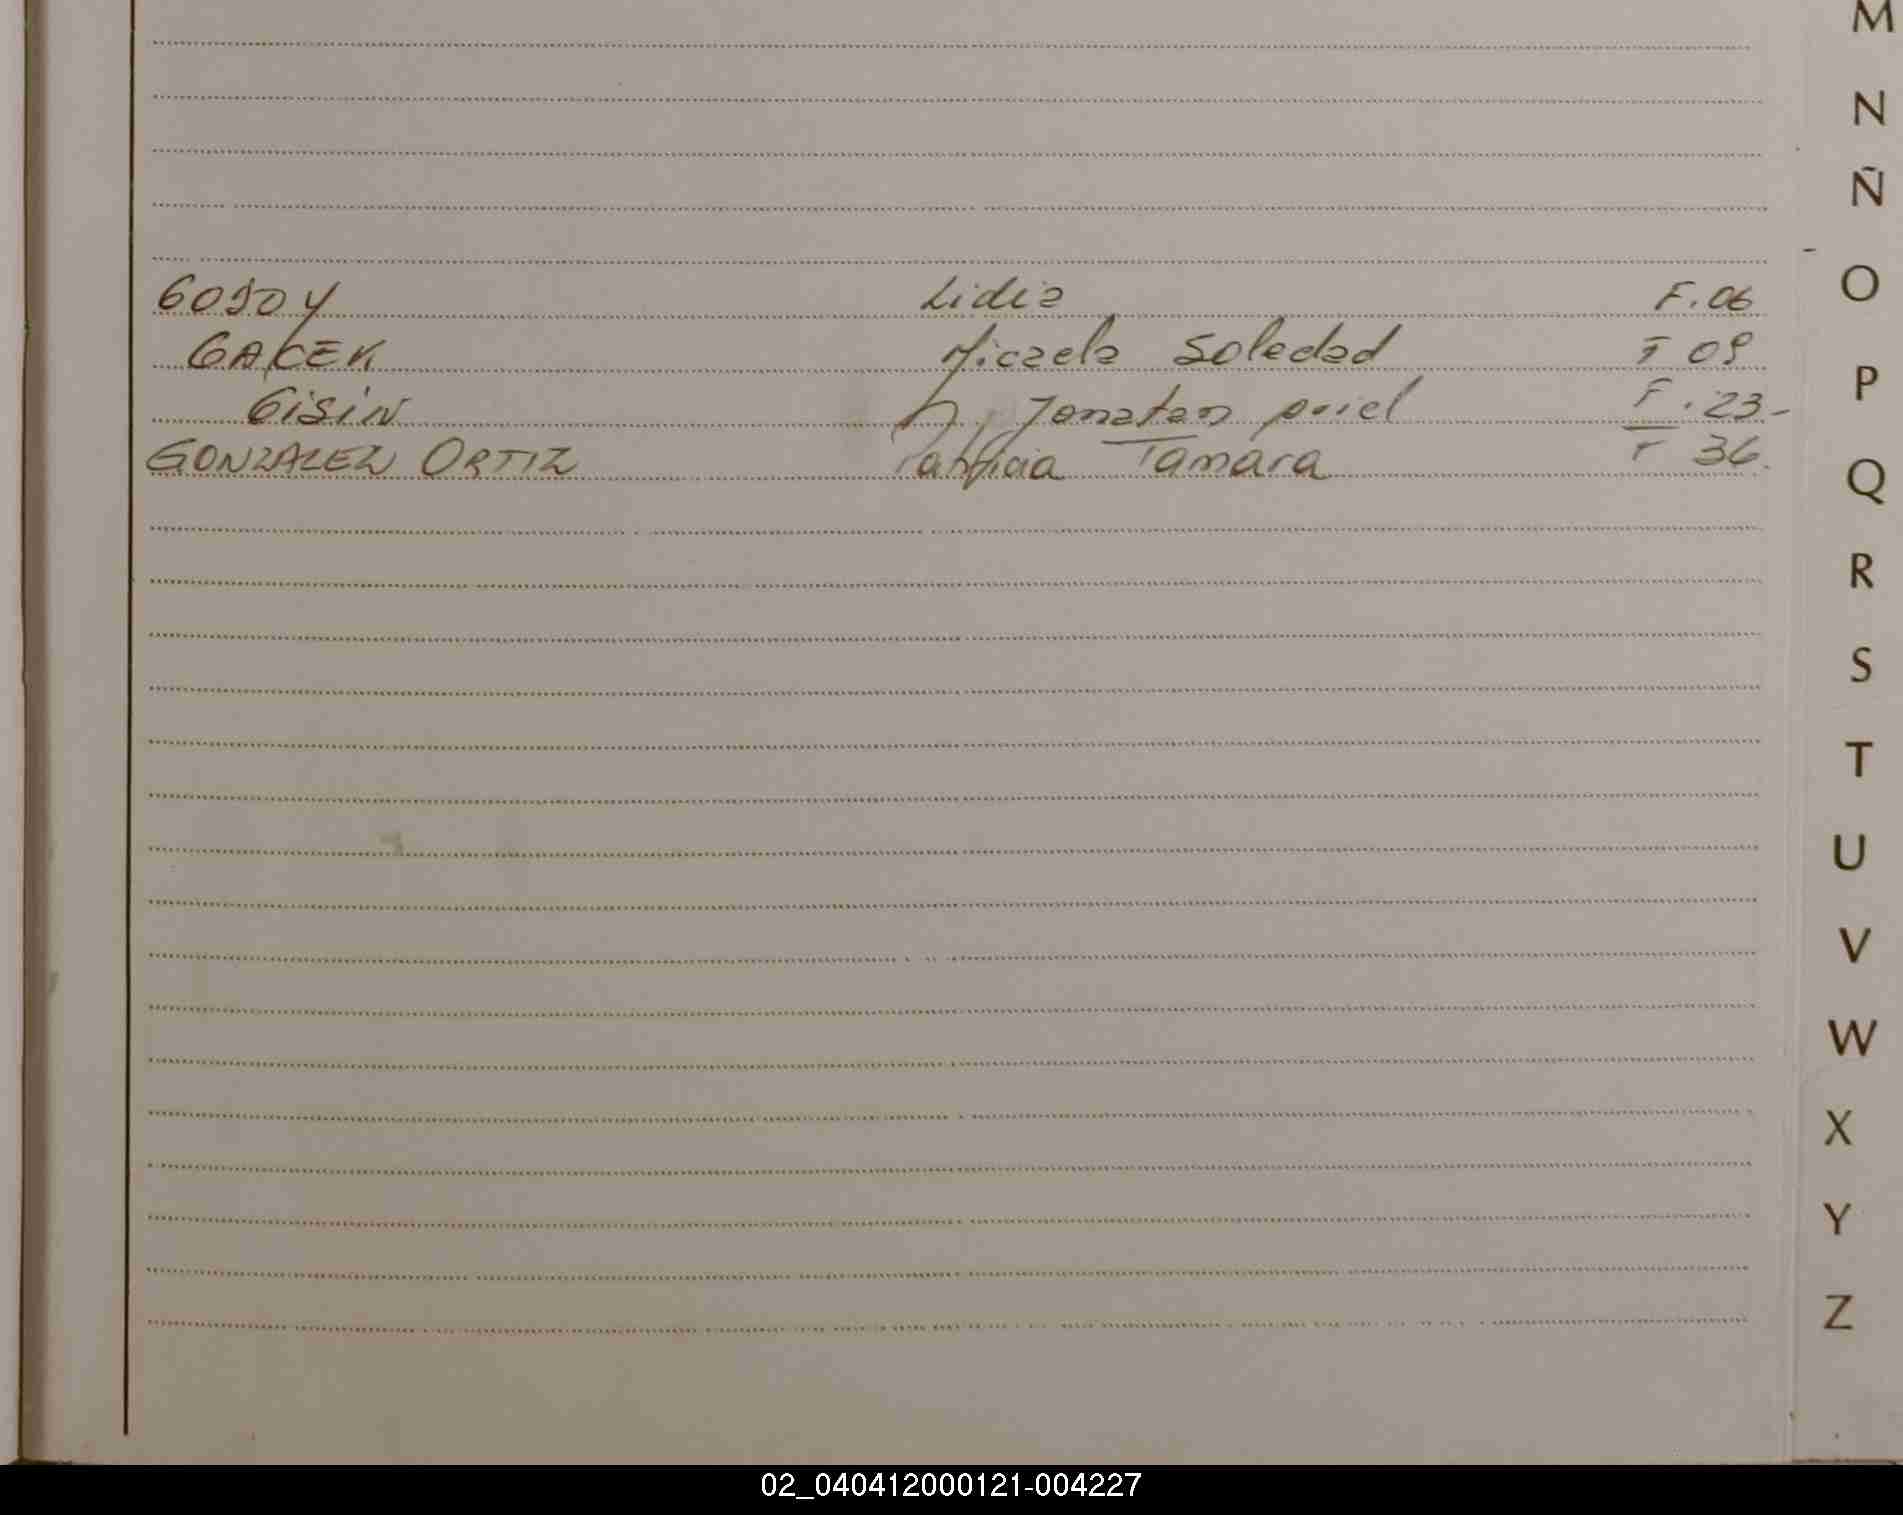 M
N
Ñ
O
GODOY Lidia F. 06
GACEK Micaela Soledad F 09
P
GiSiN Jonatan Ariel F. 23-
GONZALEZ ORTIZ Patricia Tamara F 36.
Q
R
S
T
U
V
W
X
Y
Z
02_040412000121-004227